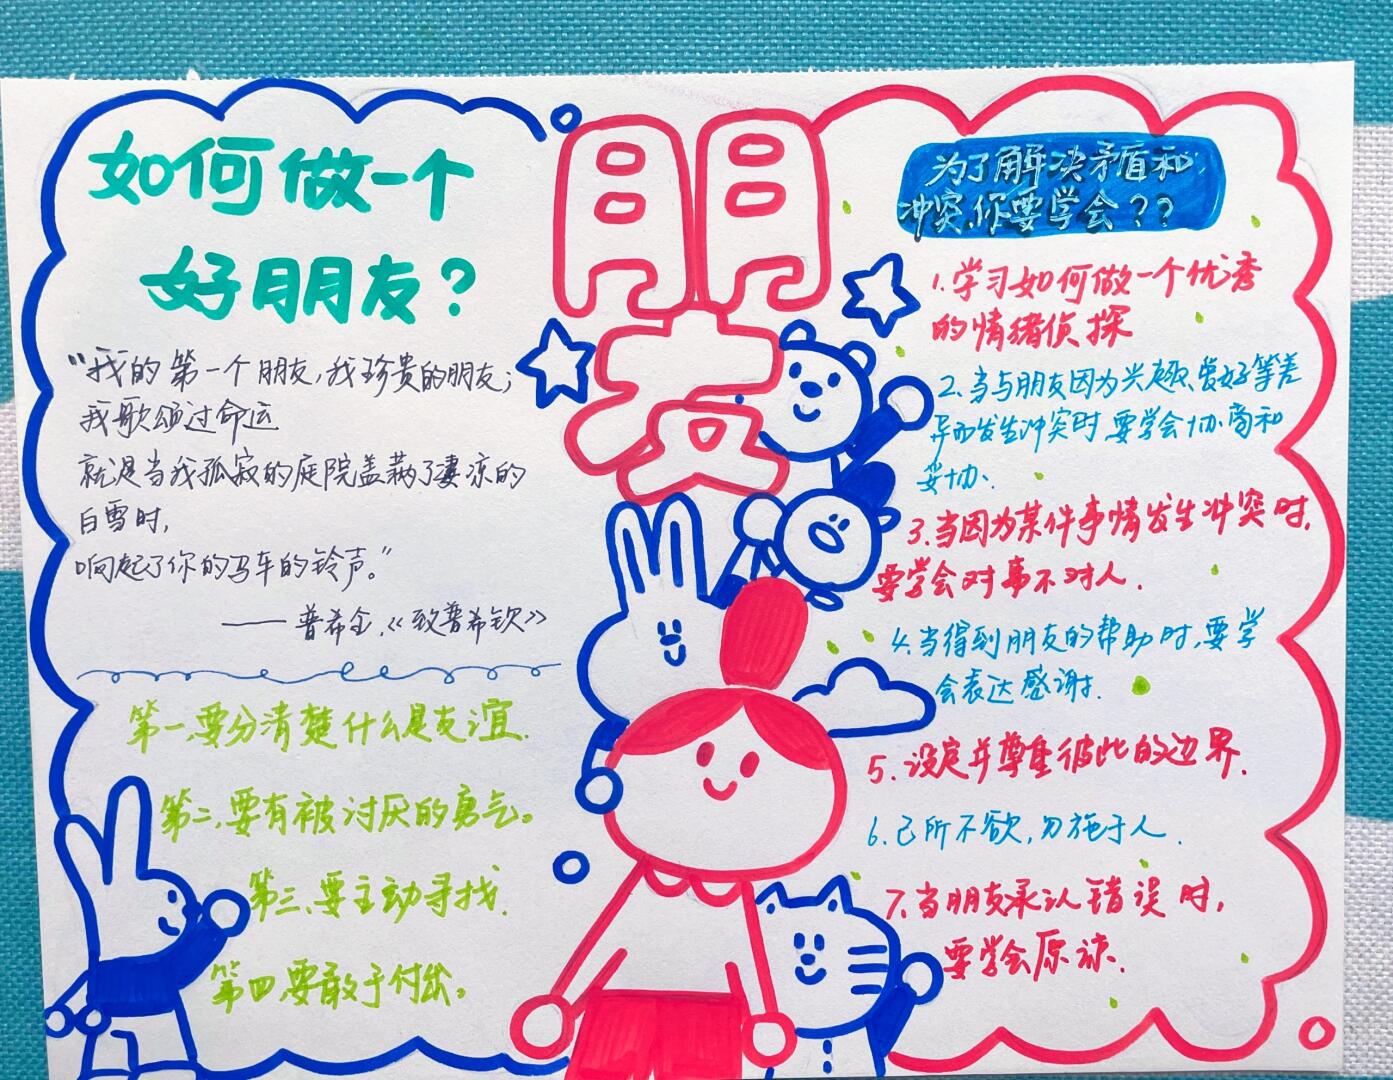 如何做一个
好朋友？
“我的第一个朋友，我珍贵的朋友；
我歌颂过命运
就是当我孤寂的庭院盖满了凄凉的
白雪时，
响起了你的马车的铃声。”
——普希金，《致普希钦》
第一、要分清楚什么是友谊.
第二、要有被讨厌的勇气。
第三、要主动寻找.
第四、要敢于付出。
朋
友
为了解决矛盾和
冲突，你要学会？？
1.学习如何做一个优秀
的情绪侦探
2.当与朋友因为兴趣、爱好等差
异而发生冲突时，要学会协商和
妥协、
3.当因为某件事情发生冲突时，
要学会对事不对人.
4.当得到朋友的帮助时，要学
会表达感谢.
5.设定并尊重彼此的边界.
6.己所不欲，勿施于人.
7.当朋友承认错误时，
要学会原谅.